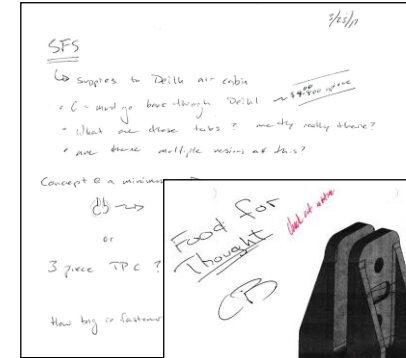 3/25/11
SFS
↳ supplies to Deihl air cabin
• C - must go back through Deihl ~ $4.00
• What are these tabs? are they really there?
• are there multiple versions of this?
Concept @ a minimum
or
3 piece TPC?
How big is fastener
Food for
Thought
CB
Check out